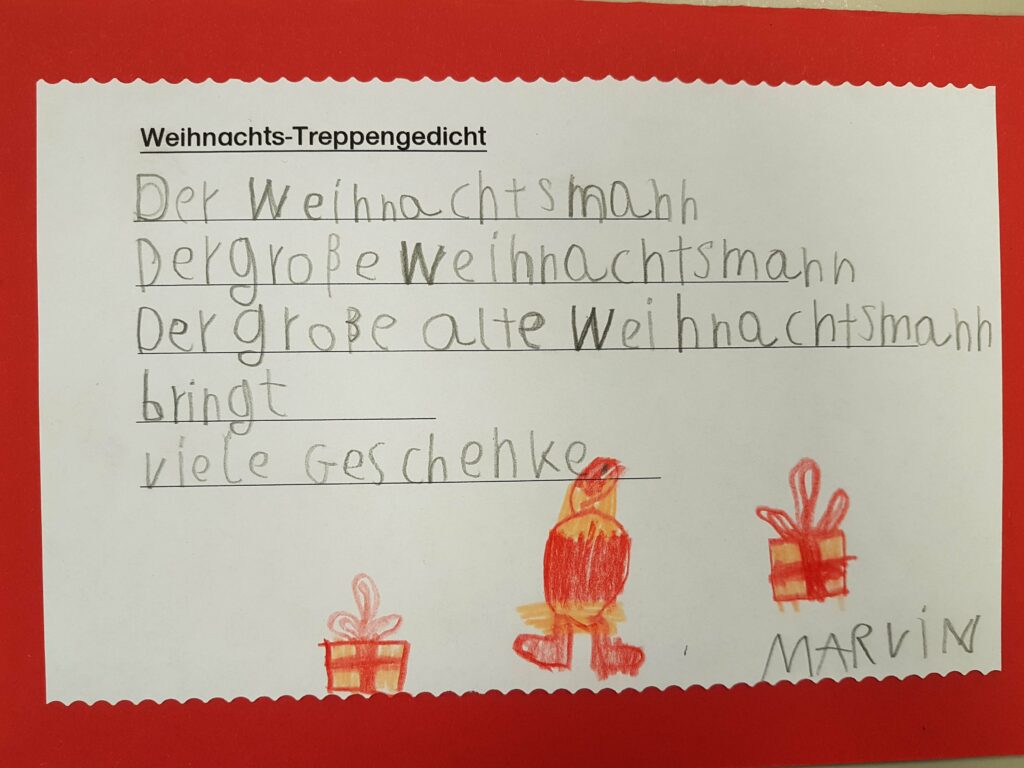 Weihnachts-Treppengedicht
Der Weihnachtsmann
Der große Weihnachtsmann
Der große alte Weihnachtsmann
bringt
viele Geschenke.
MARVIN